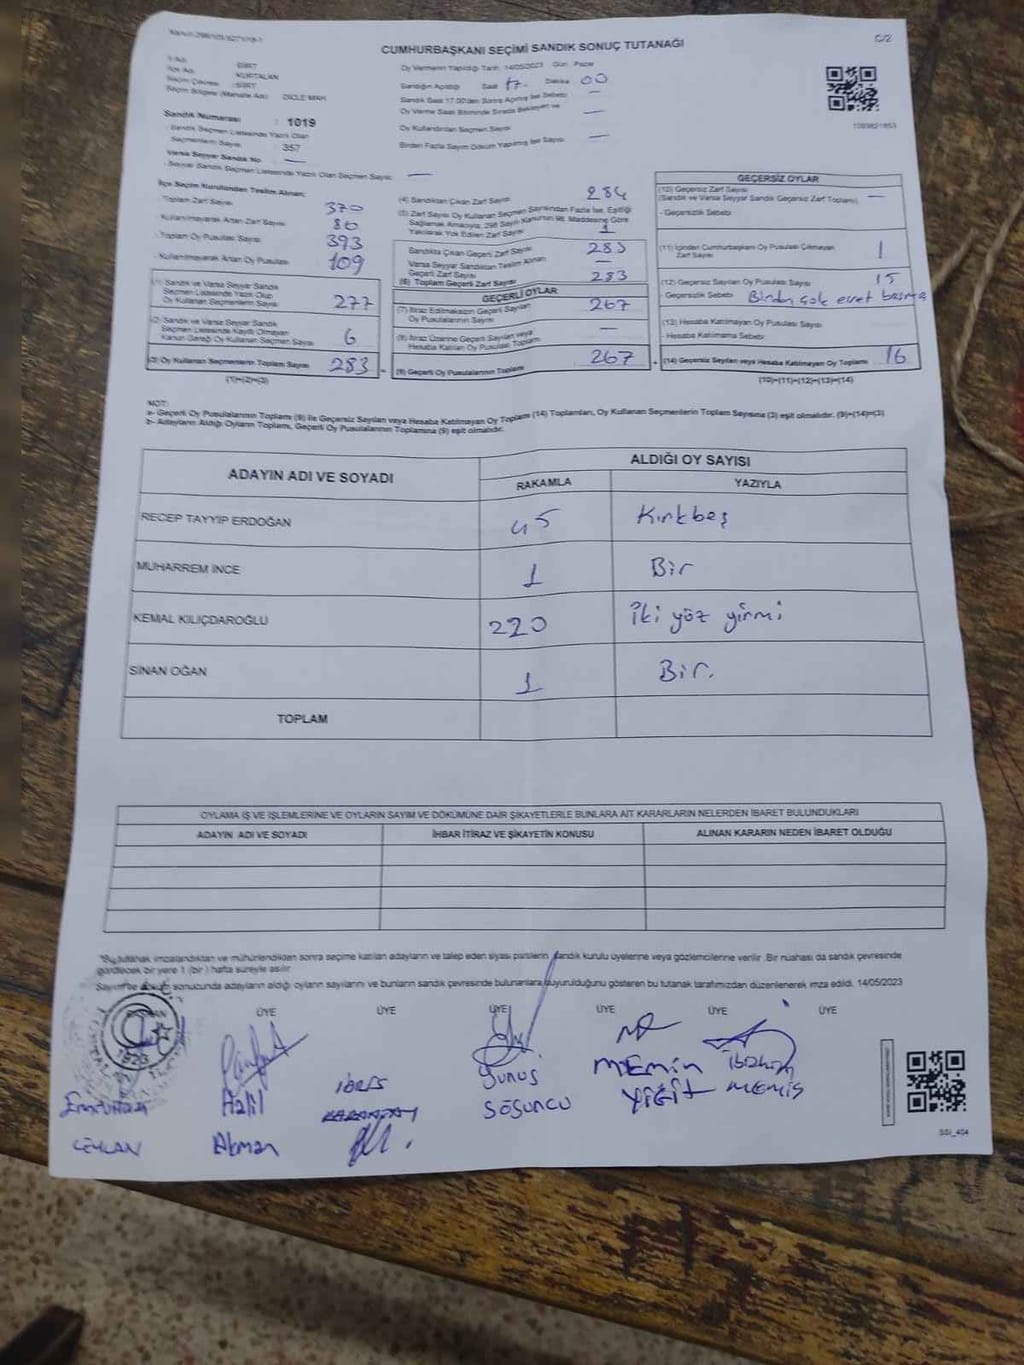 CUMHURBAŞKANI SEÇİMİ SANDIK SONUÇ TUTANAĞI
C/2
İl Adı : SİİRT
İlçe Adı : KURTALAN
Seçim Çevresi : SİİRT
Seçim Bölgesi (Mahalle Adı) : DİCLE MAH.
Sandık Numarası : 1019
Sandık Seçmen Listesinde Yazılı Olan Seçmenlerin Sayısı : 357
Varsa Seyyar Sandık No —
Seyyar Sandık Seçmen Listesinde Yazılı Olan Seçmen Sayısı —
Oy Vermenin Yapıldığı Tarih: 14/05/2023 Gün: Pazar
Sandığın Açıldığı Saat 17. Dakika 00
Sandık Saat 17:00'den Sonra Açılmış İse Sebebi —
Oy Verme Saati Bitiminde Sırada Bekleyen ve —
Oy Kullandırılan Seçmen Sayısı
Birden Fazla Sayım Döküm Yapılmış İse Sayısı —
İlçe Seçim Kurulundan Teslim Alınan;
- Toplam Zarf Sayısı 370
- Kullanılmayarak Artan Zarf Sayısı 86
- Toplam Oy Pusulası Sayısı 393
- Kullanılmayarak Artan Oy Pusulası 109
(1) Sandık ve Varsa Seyyar Sandık
Seçmen Listesinde Yazılı Olup
Oy Kullanan Seçmenlerin Sayısı 277
(2) Sandık ve Varsa Seyyar Sandık
Seçmen Listesinde Kayıtlı Olmayan
Kanun Gereği Oy Kullanan Seçmen Sayısı 6
(3) Oy Kullanan Seçmenlerin Toplam Sayısı 283
(1)+(2)=(3)
(4) Sandıktan Çıkan Zarf Sayısı 284
(5) Zarf Sayısı Oy Kullanan Seçmen Sayısından Fazla İse, Eşitliği
Sağlamak Amacıyla, 298 Sayılı Kanun'un 98. Maddesine Göre
Yakılarak Yok Edilen Zarf Sayısı 1
Sandıkta Çıkan Geçerli Zarf Sayısı 283
Varsa Seyyar Sandıktan Teslim Alınan
Geçerli Zarf Sayısı —
(6) Toplam Geçerli Zarf Sayısı 283
GEÇERLİ OYLAR
(7) İtiraz Edilmeksizin Geçerli Sayılan
Oy Pusulalarının Sayısı 267
(8) İtiraz Üzerine Geçerli Sayılan veya
Hesaba Katılan Oy Pusulası Toplamı —
(9) Geçerli Oy Pusulalarının Toplamı 267
GEÇERSİZ OYLAR
(10) Geçersiz Zarf Sayısı
(Sandık ve Varsa Seyyar Sandık Geçersiz Zarf Toplamı) —
- Geçersizlik Sebebi
(11) İçinden Cumhurbaşkanı Oy Pusulası Çıkmayan
Zarf Sayısı 1
(12) Geçersiz Sayılan Oy Pusulası Sayısı 15
- Geçersizlik Sebebi Birden çok evet basma
(13) Hesaba Katılmayan Oy Pusulası Sayısı
- Hesaba Katılmama Sebebi
(14) Geçersiz Sayılan veya Hesaba Katılmayan Oy Toplamı 16
(10)+(11)+(12)+(13)=(14)
NOT:
a- Geçerli Oy Pusulalarının Toplamı (9) ile Geçersiz Sayılan veya Hesaba Katılmayan Oy Toplamı (14) Toplamları, Oy Kullanan Seçmenlerin Toplam Sayısına (3) eşit olmalıdır. (9)+(14)=(3)
b- Adayların Aldığı Oyların Toplamı, Geçerli Oy Pusulalarının Toplamına (9) eşit olmalıdır.
ADAYIN ADI VE SOYADI
ALDIĞI OY SAYISI
RAKAMLA YAZIYLA
RECEP TAYYİP ERDOĞAN 45 Kırkbeş
MUHARREM İNCE 1 Bir
KEMAL KILIÇDAROĞLU 220 İki yüz yirmi
SİNAN OĞAN 1 Bir.
TOPLAM
OYLAMA İŞ VE İŞLEMLERİNE VE OYLARIN SAYIM VE DÖKÜMÜNE DAİR ŞİKAYETLERLE BUNLARA AİT KARARLARIN NELERDEN İBARET BULUNDUKLARI
ADAYIN ADI VE SOYADI İHBAR İTİRAZ VE ŞİKAYETİN KONUSU ALINAN KARARIN NEDEN İBARET OLDUĞU
*Bu tutanak imzalandıktan ve mühürlendikten sonra seçime katılan adayların ve talep eden siyasi partilerin sandık kurulu üyelerine veya gözlemcilerine verilir. Bir nüshası da sandık çevresinde
görülecek bir yere 1 (bir) hafta süreyle asılır.
Sayım ve döküm sonucunda adayların aldığı oyların sayılarını ve bunların sandık çevresinde bulunanlara duyurulduğunu gösteren bu tutanak tarafımızdan düzenlenerek imza edildi. 14/05/2023
BAŞKAN ÜYE ÜYE ÜYE ÜYE ÜYE ÜYE
1923
CEYLAN
Akman
İDRİS
Yunus
SÖŞÜNCÜ
M.Emin
YİĞİT
İbrahim
MEMİŞ